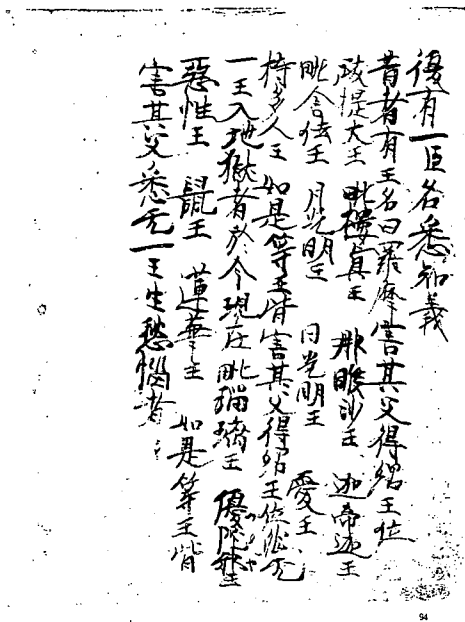 復有一臣名悉知義
昔者有王名曰羅摩害其父得紹王位
跋提大王 毗樓真王 那睺沙王 迦帝迦王
毗舍佉王 月光明王 日光明王 愛王
持多人王 如是等王皆害其父得紹王位然无
一王入地獄者於今現在毗瑠璃王 優陀耶王
惡性王 鼠王 蓮華王 如是等王皆
害其父悉无一王生愁惱者
94